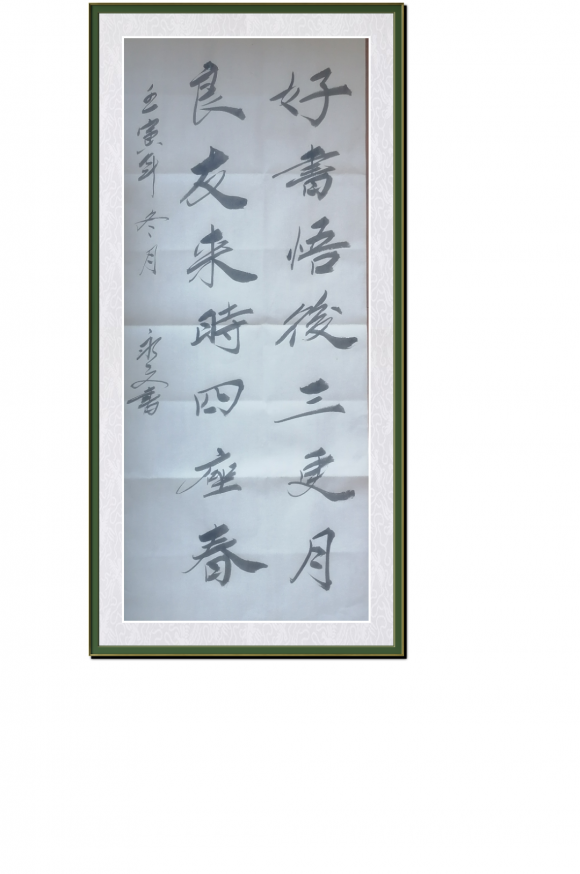 好書悟後三更月
良友来時四座春
壬寅年冬月 永文書